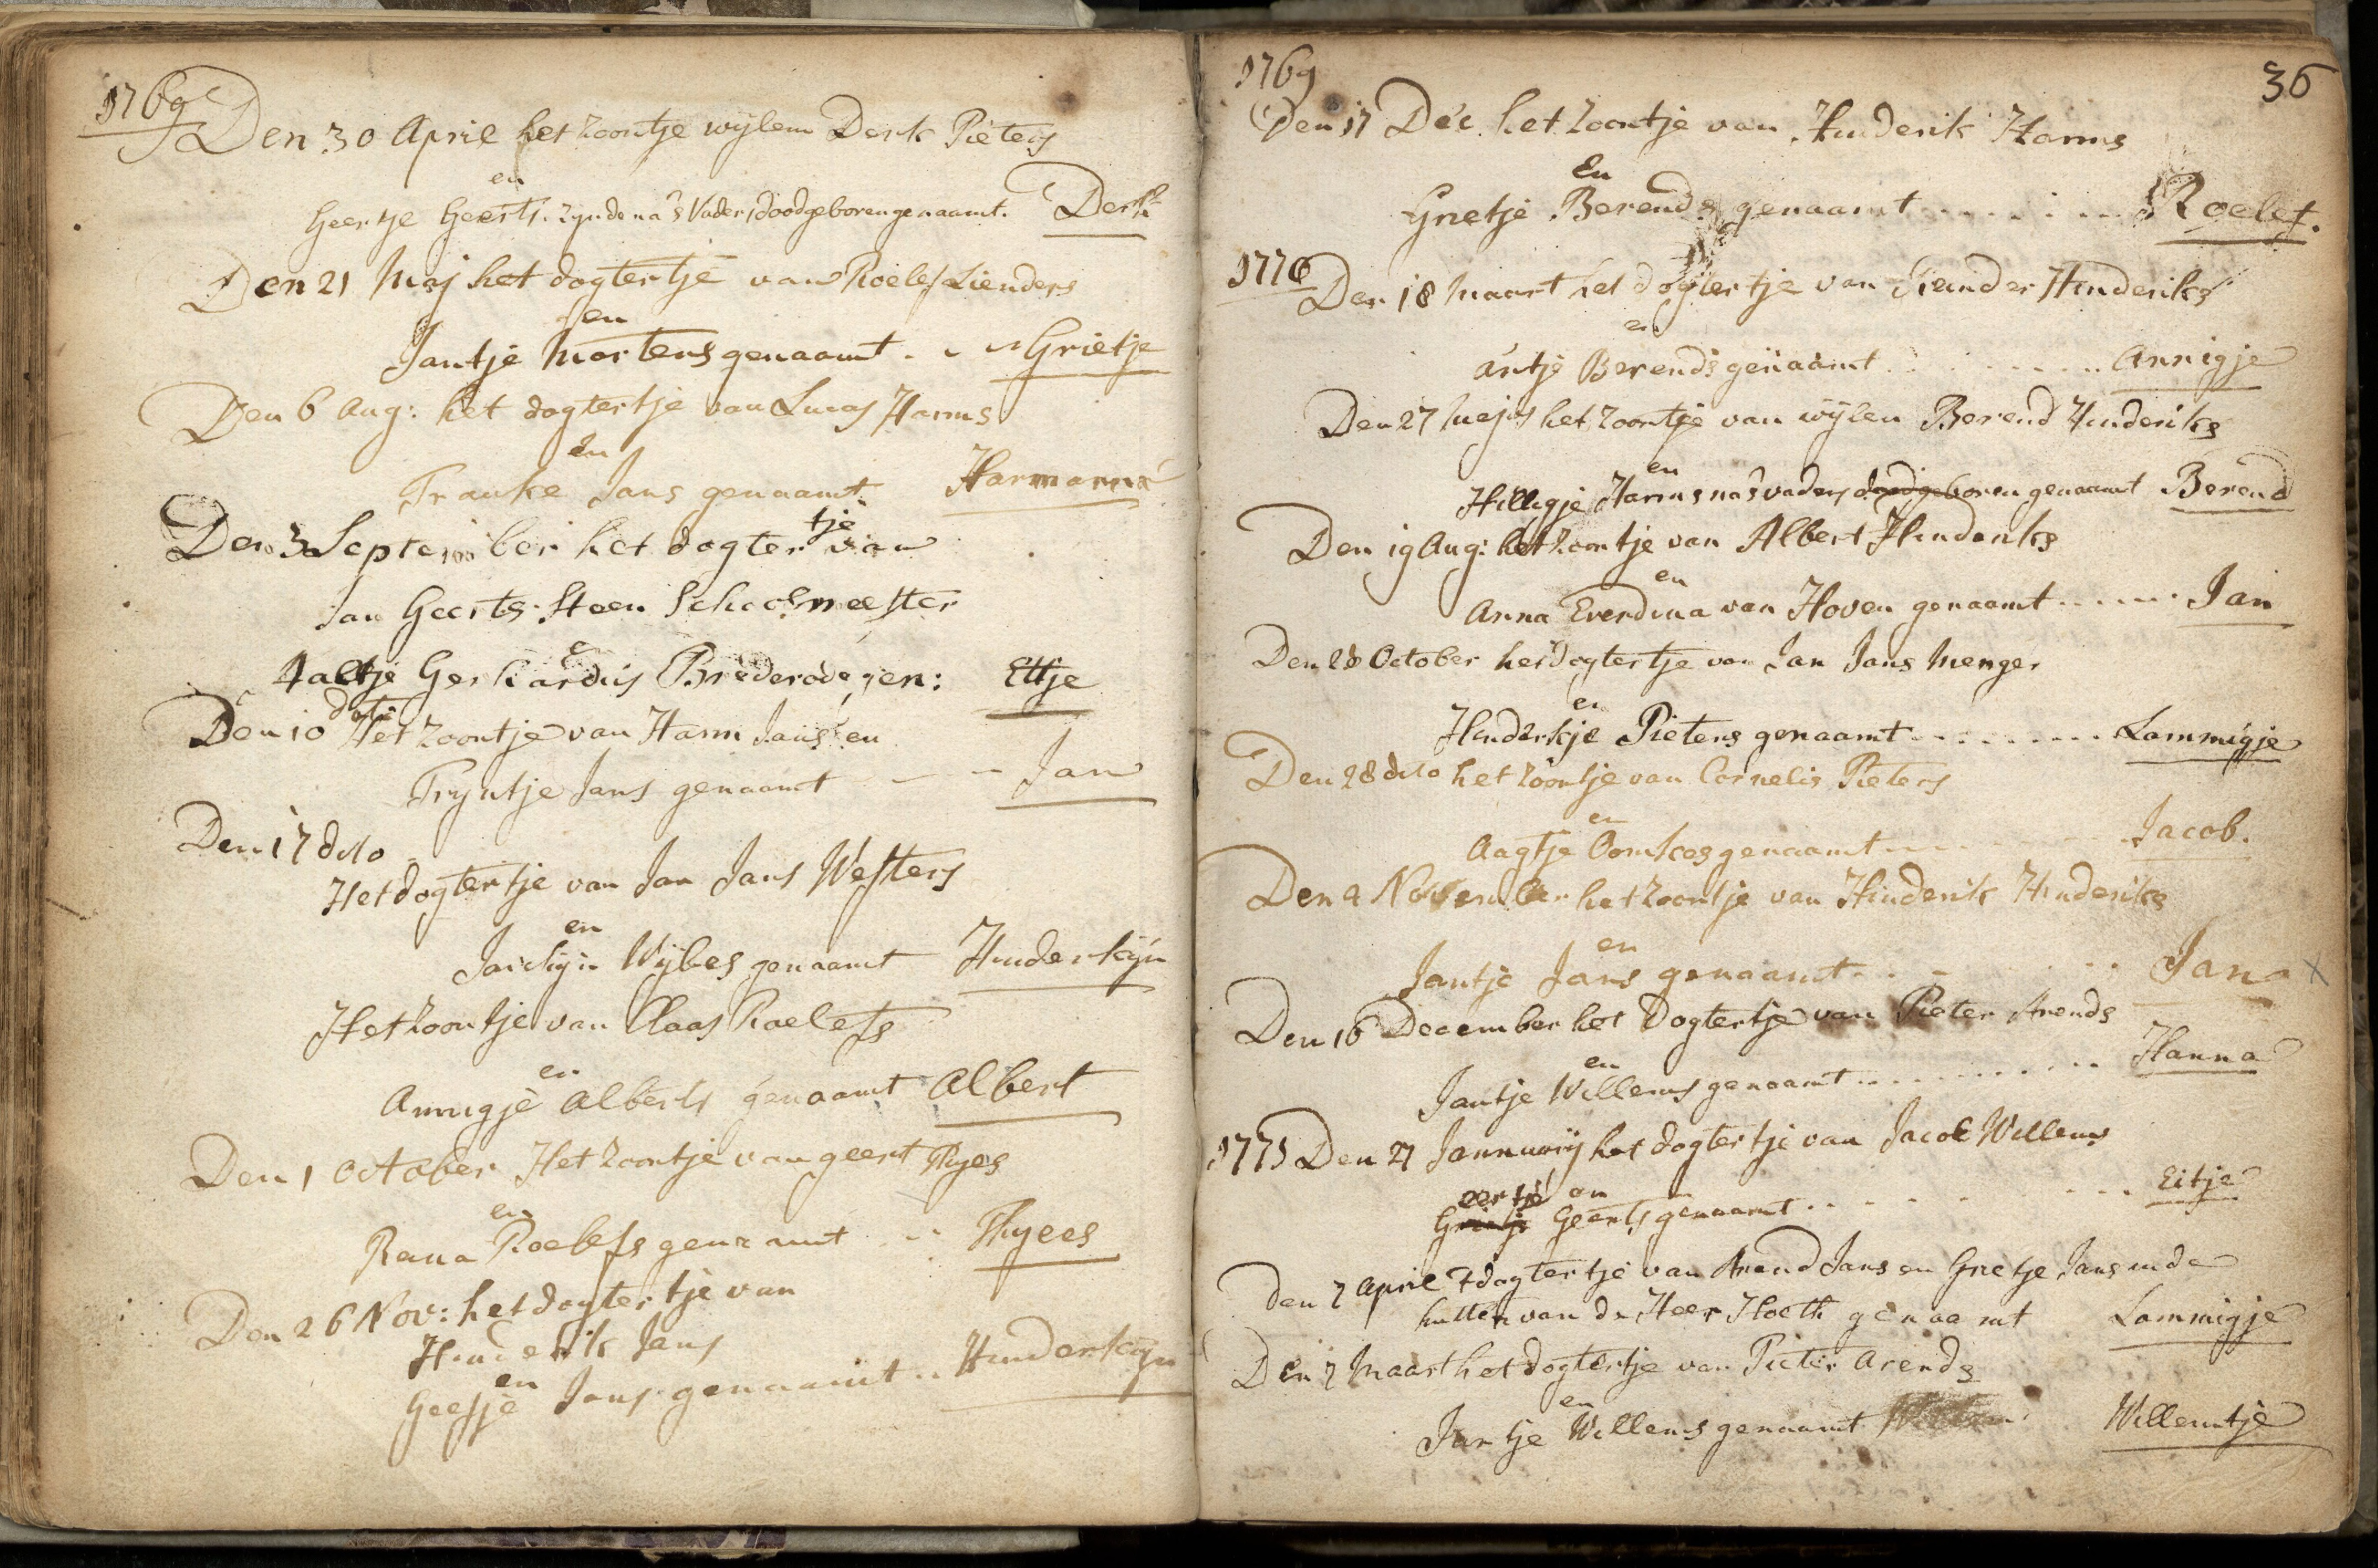 1769
Den 30 April het zoontje wijlen Derk Pieters
en
Geertje Geerts. zynde na's Vaders dood geboren genaamt. Derk
Den 21 Maj het dogtertje van Roelef Lienders
en
Jantje Martens genaamt . . . Grietje
Den 6 Aug: het dogtertje van Lucas Harms
en
Frauke Jans genaamt Harmanna
Den 3 September het dogtertje van
Jan Geerts Steen Schoolmeester
en
Aaltje Gerhardus Brederode, gen: Ettje
Den 10 dato Het zoontje van Harm Jans en
Tryntje Jans genaamt - - Jan
Den 17 dito
Het dogtertje van Jan Jans Westers
en
Wijbes genaamt Hinderkijn
Het zoontje van Claas Roelefs
en
Annigje Alberts genaamt Albert
Den 1 October Het zoontje van geert Thyes
en
Rena Roelefs genaamt . . Thyees
Den 26 Nov: het dogtertje van
Hinderik Jans
en
Geesje Jans genaamt . . Hinderkijn
1769
36
Den 17 Dec. het zoontje van Hinderik Harms
En
Grietje Berends genaamt . . . . . . Roelef.
1770 Den 18 Maart het dogtertje van Hinderiks
en
antje Berends genaamt . . . . . . Annigje
Den 27 Majus het zoontje van wijlen Berend Hinderiks
en
Hilligje Harms na's vaders dood geboren genaamt Berend
Den 19 Aug: het zoontje van Albert Hinderiks
en
Anna Everdina van Hoven genaamt . . . . . . Jan
Den 28 October het dogtertje van Jan Jans Menger
en
Hinderkje Pieters genaamt . . . . . . . . Lammigje
Den 28 dito het zoontje van Cornelis Pieters
en
Aagtje Oomkes genaamt . . . . Jacob.
Den 4 November het zoontje van Hinderik Hinderiks
en
Jantje Jans genaamt . . . . . Jan
Den 16 December het Dogtertje van Pieter Arends
en
Jantje Willems genaamt . . . . . . . . . . Hanna
1771 Den 27 Jannuarij het dogtertje van Jacob Willems
eertje en
Grietje Geerts genaamt . . . . . . . Eitje
Den 7 April 't dogtertje van Arend Jans en Grietje Jans in de
hutten van de Heer Hoeth genaamt Lammigje
Den 7 Maart het dogtertje van Pieter Arends
en
Jantje Willems genaamt Willemtje